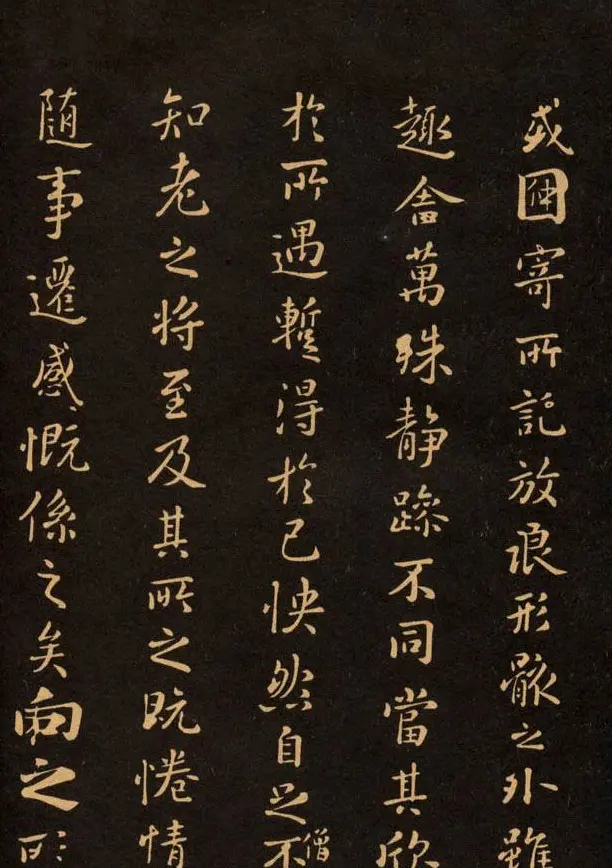 或因寄所託放浪形骸之外雖
趣舍萬殊静躁不同當其欣
於所遇暫得於己怏然自足不
僧
知老之将至及其所之既惓情
随事遷感慨係之矣向之所